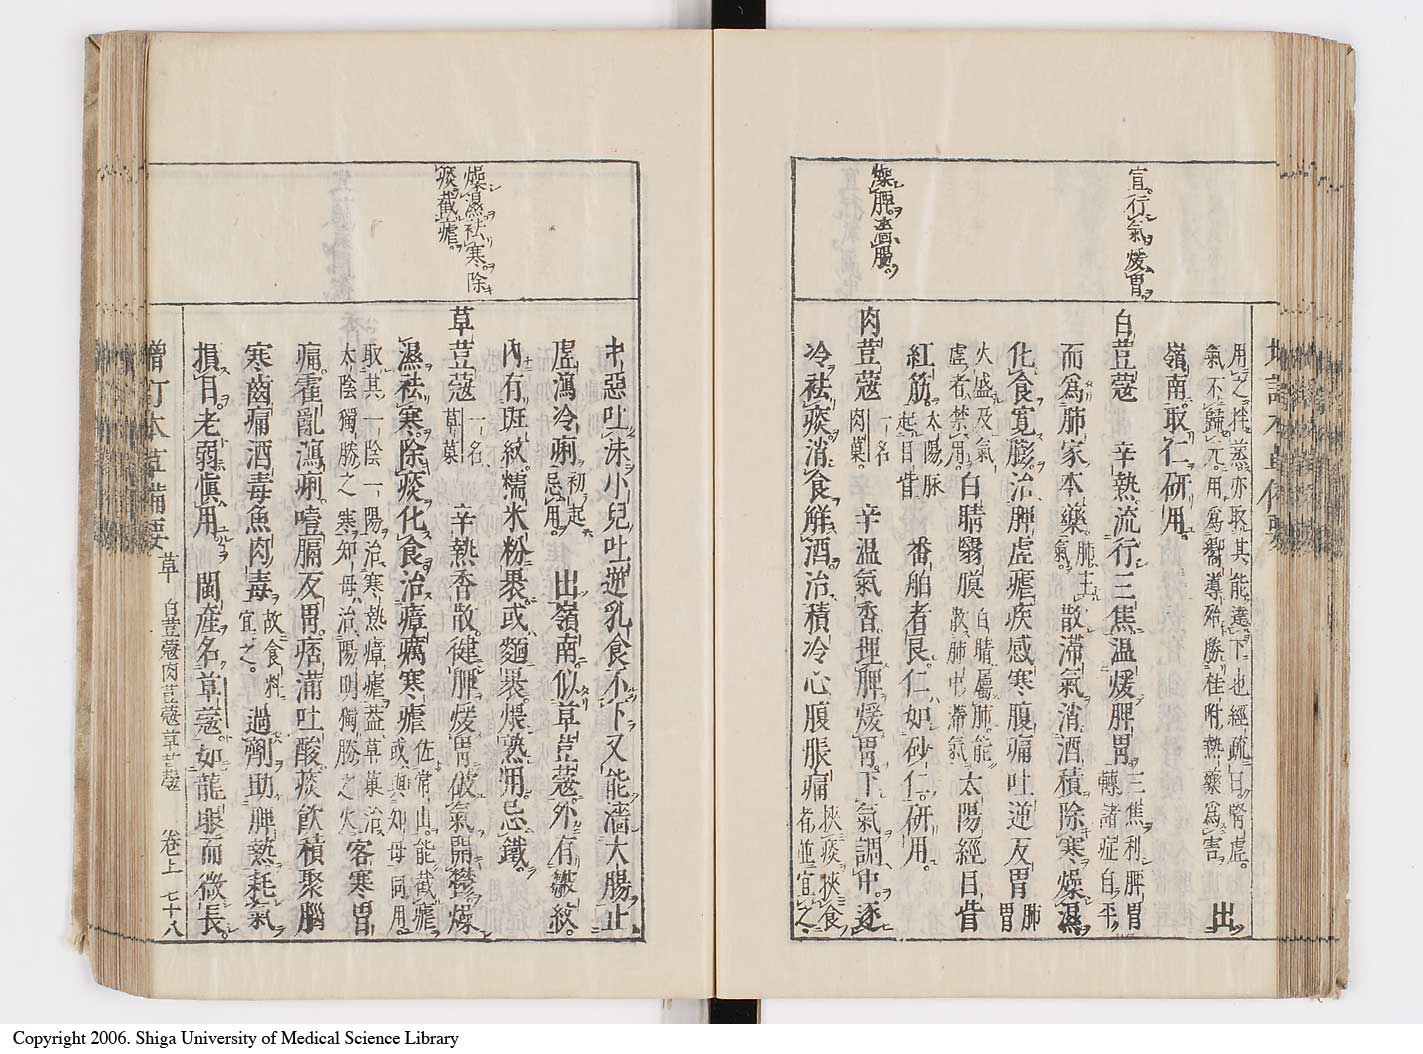 宜行氣煖胃
燥脾濇腸
用之拌蒸亦取其能達下也經疏曰腎虛
氣不歸元用爲嚮導殆勝桂附熱藥爲害 出
嶺南取仁研用
白荳蔻 辛熱流行三焦温煖脾胃 三焦利脾胃
轉諸症自平
而爲肺家本藥 肺主氣 散滯氣消酒積除寒燥濕
化食寬膨治脾虛瘧疾感寒腹痛吐逆反胃 肺胃
火盛及氣虛者禁用 白睛翳膜 白睛屬肺能散肺中滯氣 太陽經目眥
紅筋 太陽脉起目眥 番舶者良仁如砂仁研用
肉荳蔻 一名肉菓 辛温氣香理脾煖胃下氣調中逐
冷袪痰消食解酒治積冷心腹脹痛 挾痰挾食者並宜之
燥濕袪寒除
痰截瘧
中惡吐沫小兒吐逆乳食不下又能濇大腸止
虛瀉冷痢 初起忌用 出嶺南似草荳蔻外有皺紋
内有斑紋糯米粉裹或麵裹煨熟用忌鐵
草荳蔻 一名草菓 辛熱香散健脾煖胃破氣開鬱燥
濕袪寒除痰化食治瘴癘寒瘧 佐常山能截瘧
或與知母同用
取其一陰一陽治寒熱瘴瘧蓋草菓治
太陰獨勝之寒知母治陽明獨勝之火 客寒胃
痛霍亂瀉痢噎膈反胃痞滿吐酸痰飲積聚腦
寒齒痛酒毒魚肉毒 故食料宜之 過劑助脾熱耗氣
損目老弱慎用 閩産名草蔻如龍眼而微長
增訂本草備要 草 白荳蔻肉荳蔻草荳蔻 卷上 七十八
Copyright 2006. Shiga University of Medical Science Library